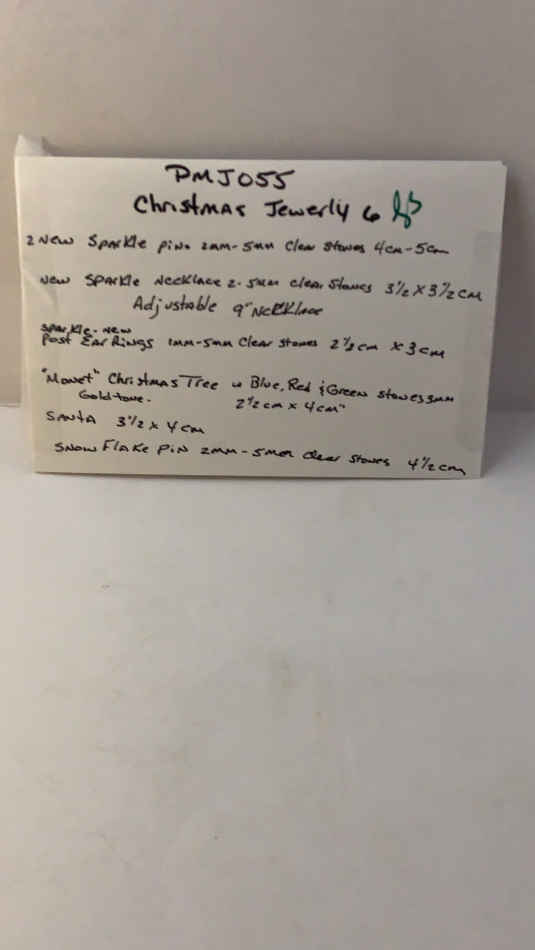 PMJ055
Christmas Jewerly 6
2 New Sparkle pins 2mm-5mm Clear Stones 4cm-5cm
New Sparkle Necklace 2-5mm clear Stones 3 1/2 X 3 1/2 CM
Adjustable 9" Necklace
Sparkle-new
Post Ear Rings 1mm-5mm Clear Stones 2 1/2 cm X 3 cm
"Monet" Christmas Tree w Blue, Red & Green Stones 3mm
Gold tone. 2 1/2 cm x 4cm"
Santa 3 1/2 x 4cm
Snow Flake Pin 2mm-5mm Clear Stones 4 1/2 cm